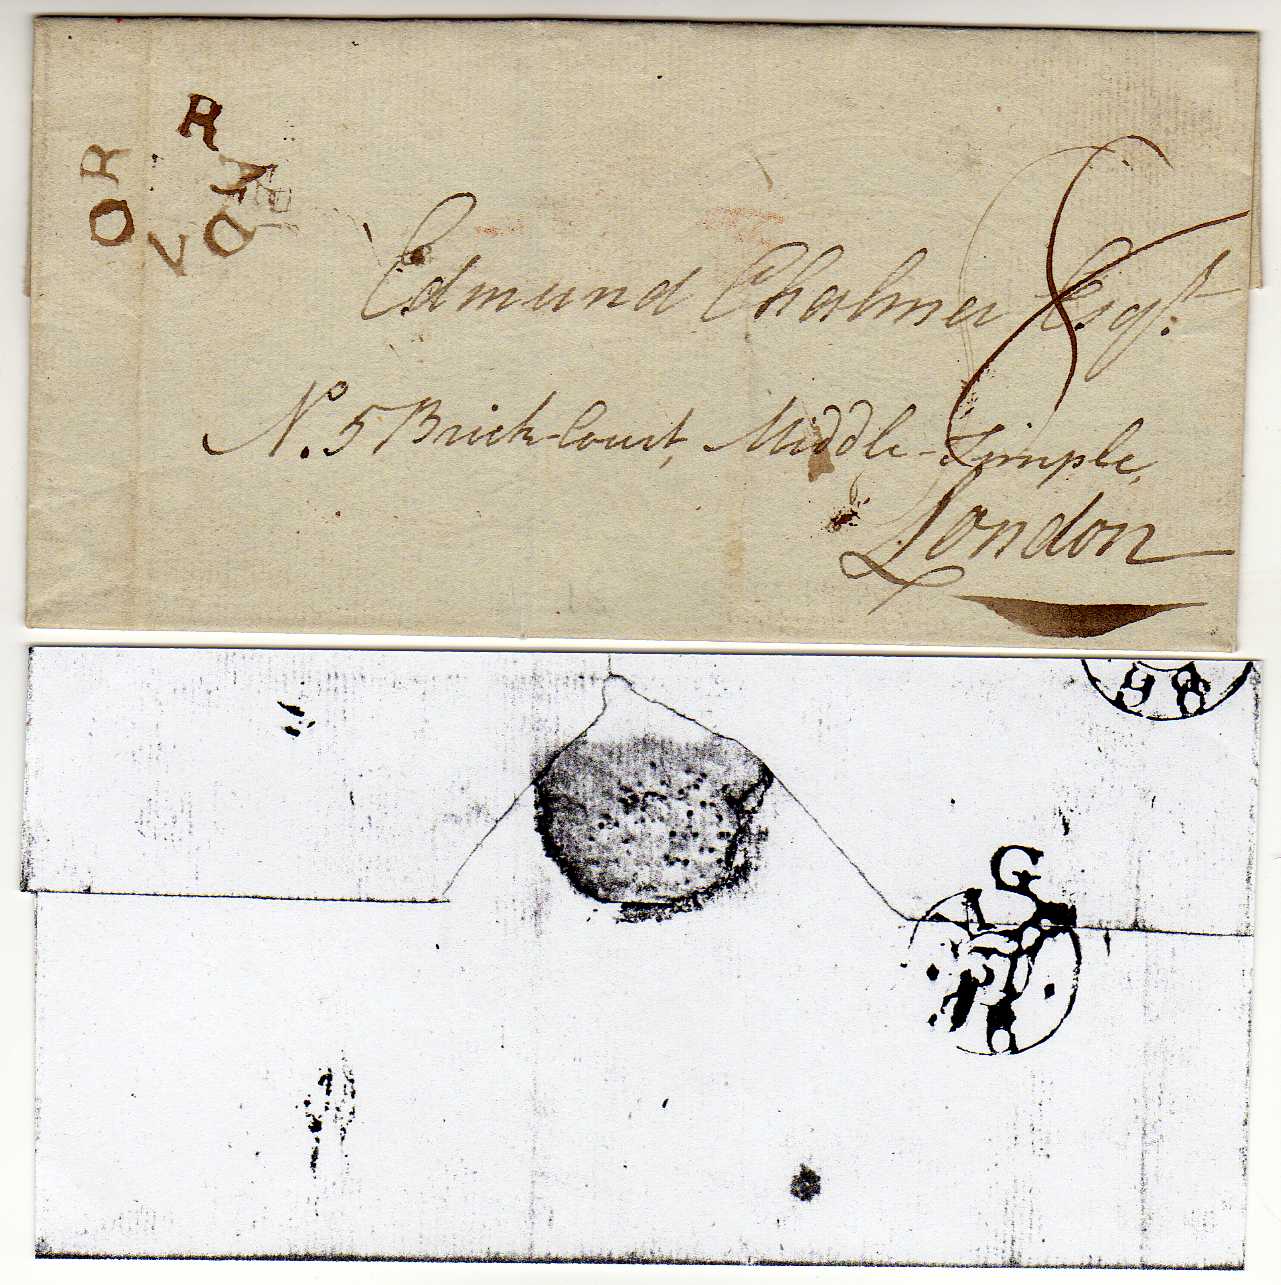 ORRADVO
8
Edmund Chalmer Esqr.
No. 5 Brick-Court, Middle-Temple,
London
98
G